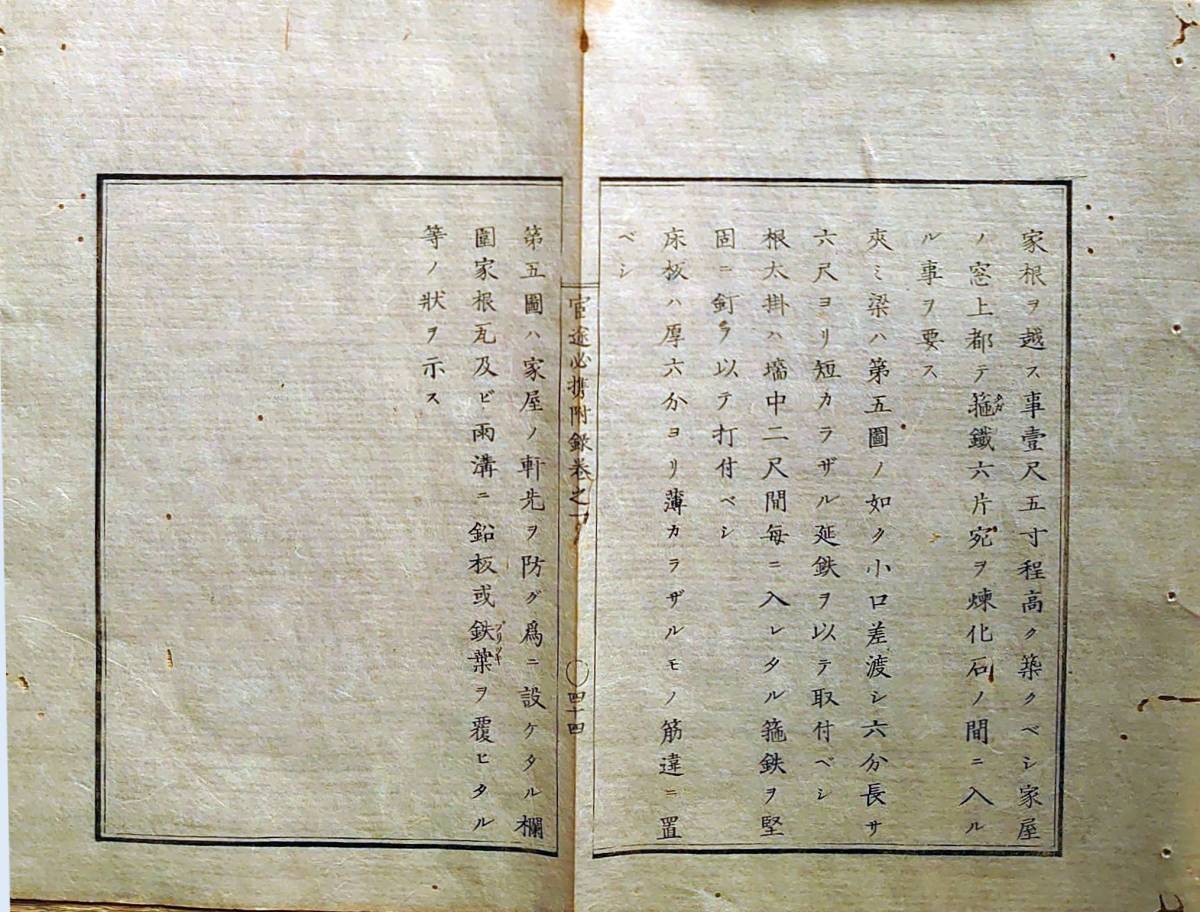 家根ヲ越ス事壹尺五寸程高ク築クベシ家屋
ノ窓上都テ箍鐵六片宛ヲ煉化石ノ間ニ入ル
ル事ヲ要ス
夾ミ梁ハ第五圖ノ如ク小口差渡シ六分長サ
六尺ヨリ短カラザル延鉄ヲ以テ取付ベシ
根太掛ハ墻中二尺間每ニ入レタル箍鉄ヲ堅
固ニ釘ヲ以テ打付ベシ
床板ハ厚六分ヨリ薄カラザルモノ筋違ニ置
ベシ
官途必携附錄卷之
四十四
第五圖ハ家屋ノ軒先ヲ防グ爲ニ設ケタル欄
圍家根瓦及ビ雨溝ニ鉛板或鉄葉ヲ覆ヒタル
ブリツキ
等ノ狀ヲ示ス